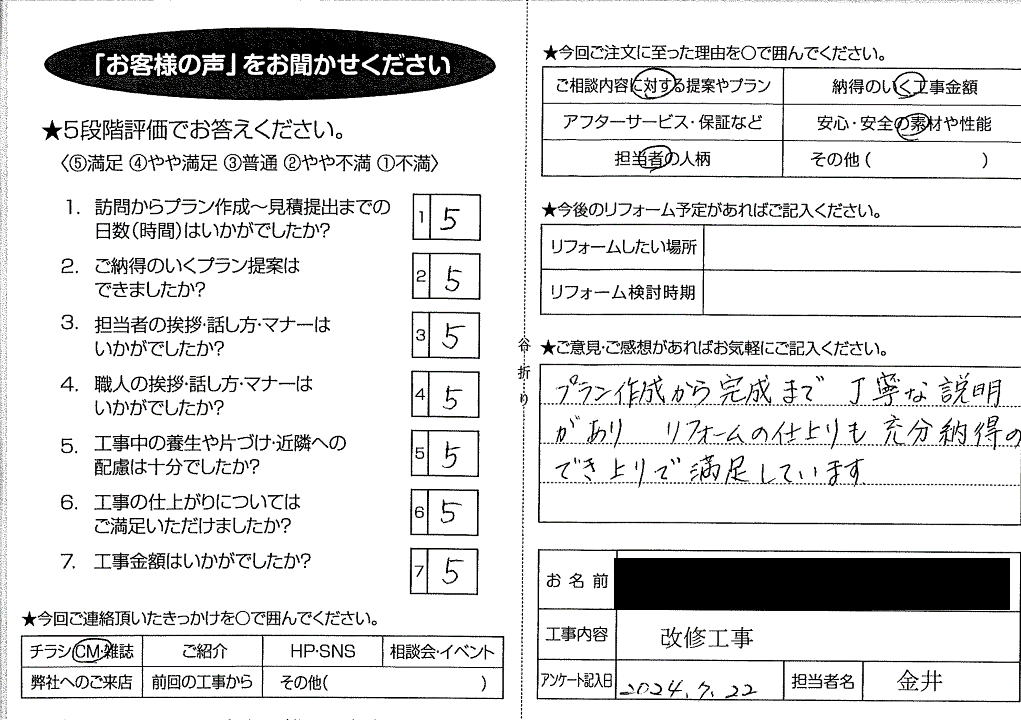 「お客様の声」をお聞かせください
★5段階評価でお答えください。
〈⑤満足 ④やや満足 ③普通 ②やや不満 ①不満〉
1. 訪問からプラン作成〜見積提出までの
日数(時間)はいかがでしたか?
1 5
2. ご納得のいくプラン提案は
できましたか?
2 5
3. 担当者の挨拶・話し方・マナーは
いかがでしたか?
3 5
4. 職人の挨拶・話し方・マナーは
いかがでしたか?
4 5
5. 工事中の養生や片づけ・近隣への
配慮は十分でしたか?
5 5
6. 工事の仕上がりについては
ご満足いただけましたか?
6 5
7. 工事金額はいかがでしたか?
7 5
★今回ご連絡頂いたきっかけを〇で囲んでください。
チラシ・CM・雑誌 ご紹介 HP・SNS 相談会・イベント
弊社へのご来店 前回の工事から その他( )
谷折り
★今回ご注文に至った理由を〇で囲んでください。
ご相談内容に対する提案やプラン 納得のいく工事金額
アフターサービス・保証など 安心・安全の素材や性能
担当者の人柄 その他( )
★今後のリフォーム予定があればご記入ください。
リフォームしたい場所
リフォーム検討時期
★ご意見・ご感想があればお気軽にご記入ください。
プラン作成から完成まで 丁寧な説明
があり リフォームの仕上りも 充分納得の
でき上りで満足しています
お名前
工事内容 改修工事
アンケート記入日 2024.7.22 担当者名 金井